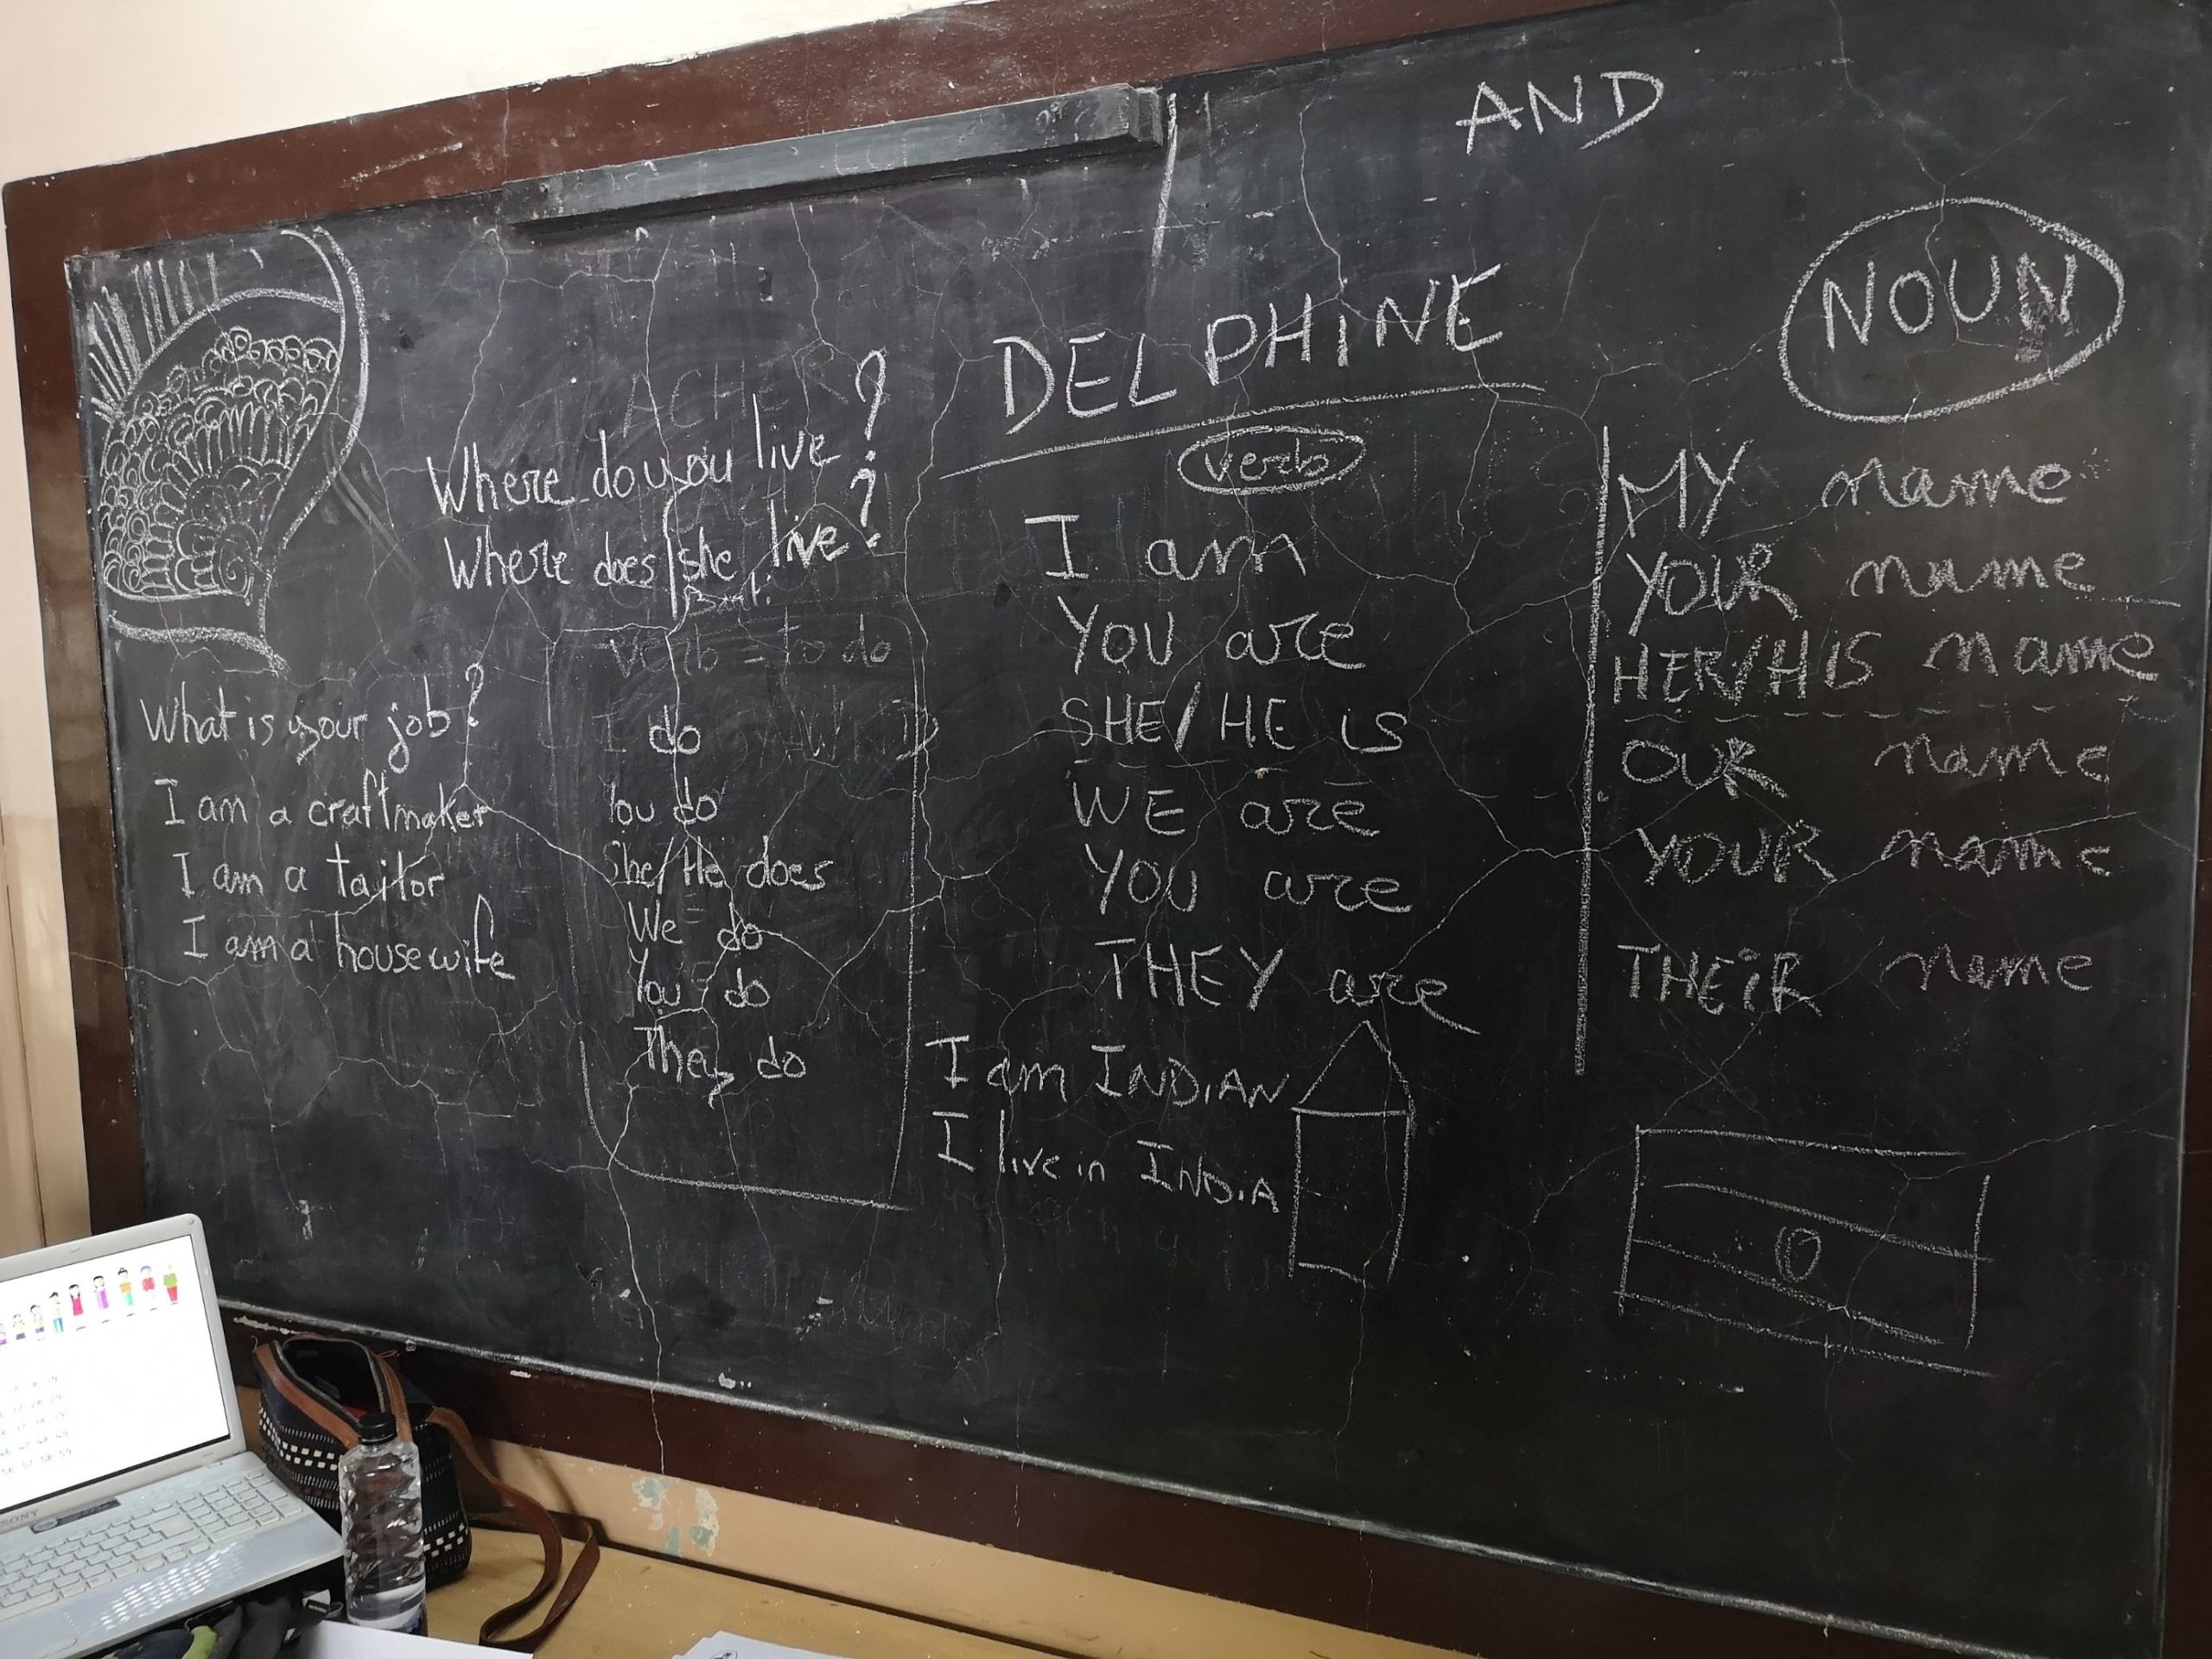 AND
DELPHiNE
NOUN
Where do you live ?
Where does she live ?
verb = to do
I do
You do
She/He does
We do
You do
They do
What is your job ?
I am a craftmaker
I am a tailor
I am a housewife
verb
I am
YOU are
SHE/HE is
WE are
YOU are
THEY are
I am INDiAN
I live in INDiA
MY name
YOUR name
HER/HIS name
OUR name
YOUR name
THEiR name
SONY